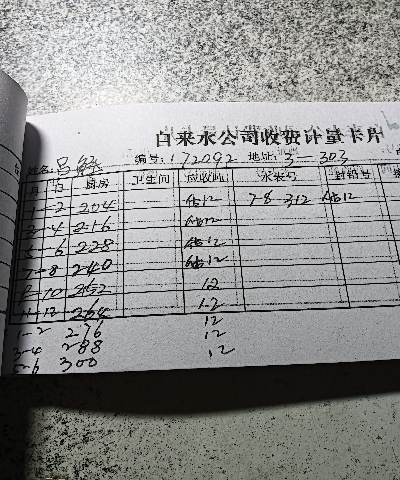 自来水公司收费计量卡片
姓名: 吕 编号: 172092 地址: 3-303
月 厨房 卫生间 应收吨 水表号
1-2 204 12 78312 12
3-4 216 12
5-6 228 12
7-8 240 12
9-10 252 12
11-12 264 12
1-2 276 12
3-4 288 12
5-6 300 12